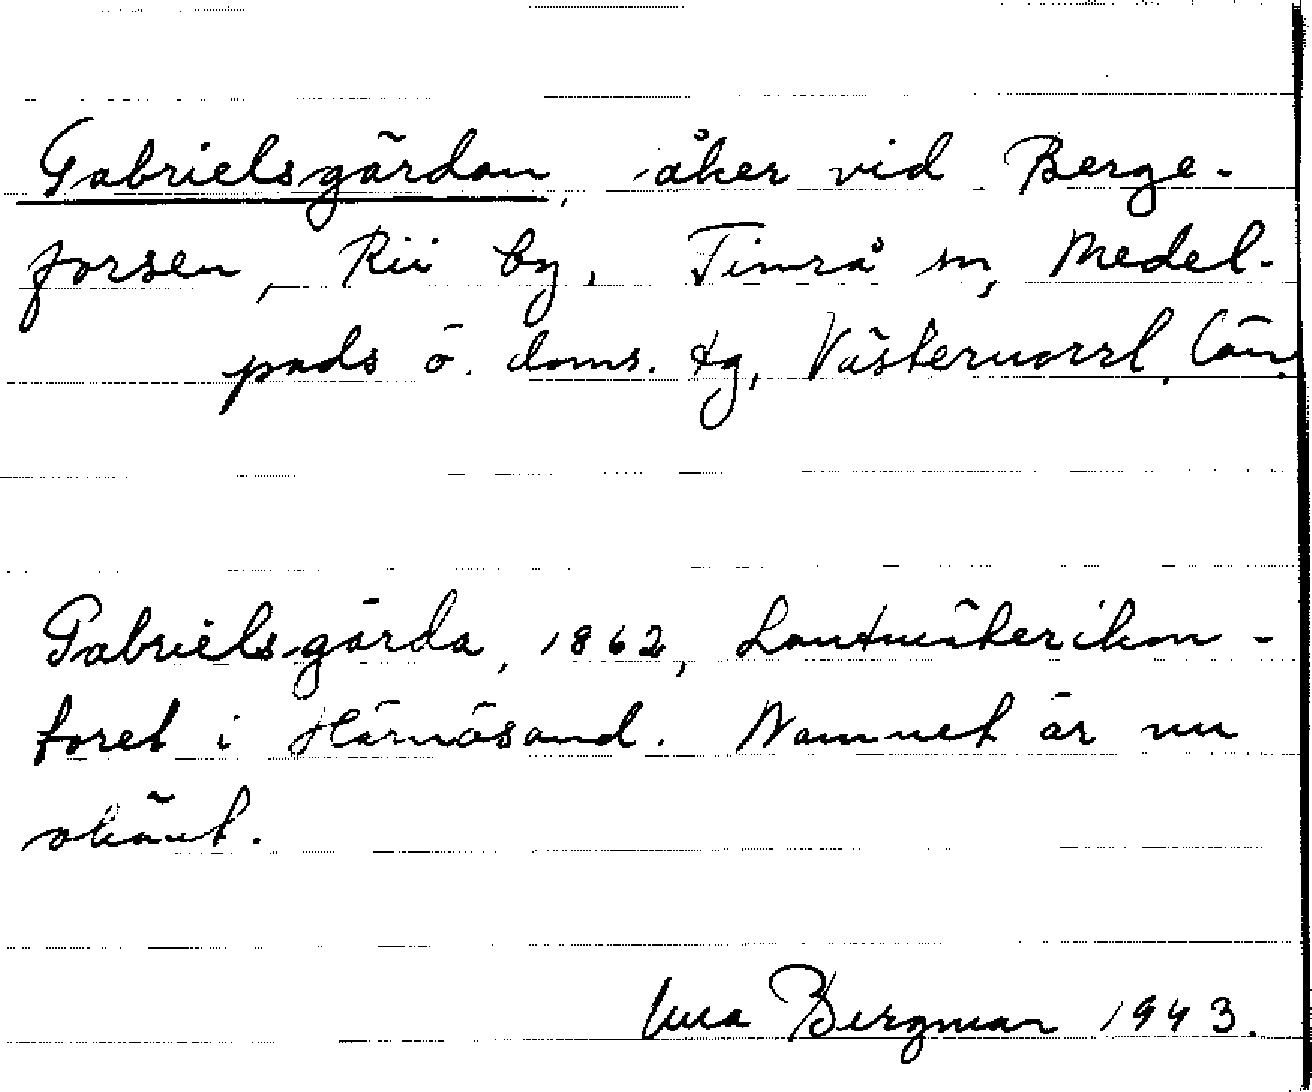 Gabrielsgärdan, åker vid Berge-
forsen, Rii by, Timrå sn, Medel-
pads ö. doms. tg, Västernorrl. län.
Gabrielsgärda, 1862, Lantmäterikon-
toret i Härnösand. Namnet är nu
okänt.
Bergman 1943.